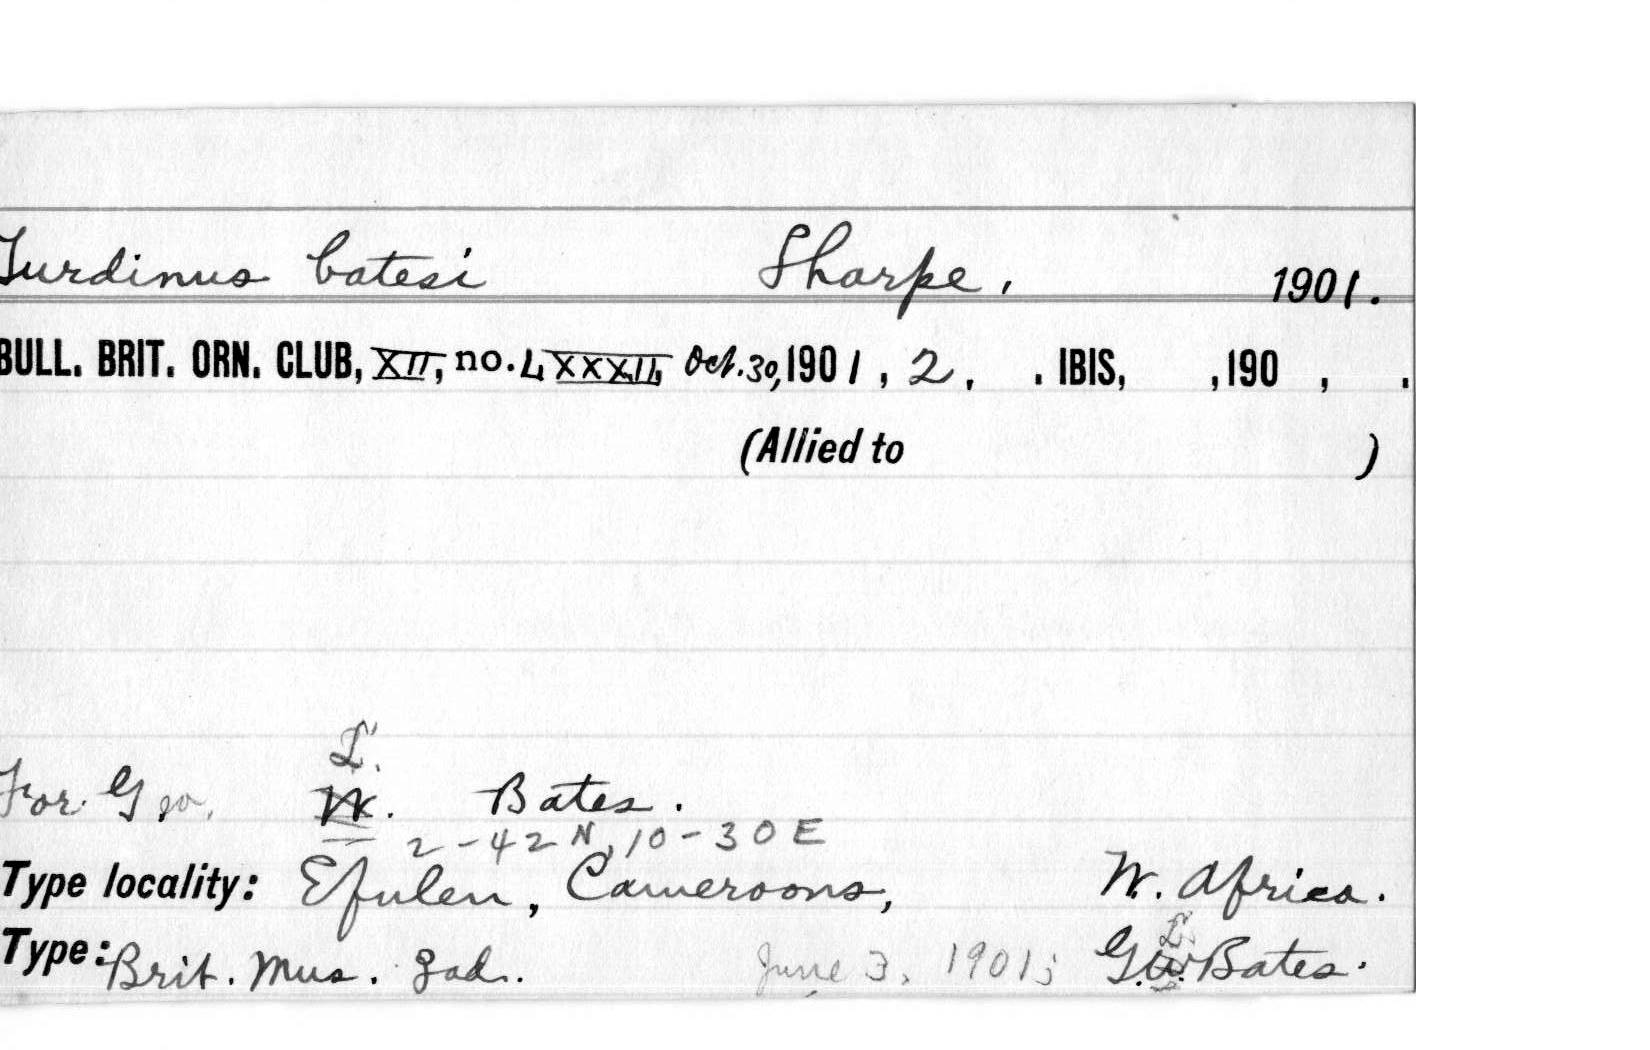 Turdinus batesi Sharpe, 1901.
BULL. BRIT. ORN. CLUB, XII, no. LXXXII, Oct. 30, 1901, 2, . IBIS, , 190 , .
(Allied to )
L.
For Geo. W. Bates.
2-42 N, 10-30 E
Type locality: Efulen, Cameroons, W. Africa.
L.
Type: Brit. Mus. ad. June 3, 1901; G.W. Bates.